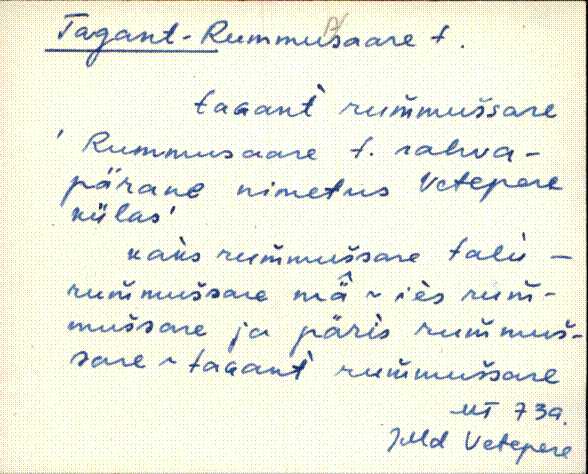 Tagant-Rummusaare t.
taGant̀ rum̆muššare
'Rummusaare t. rahva-
pärane nimetus Vetepere
külas'
kaks rum̆muššare talu —
rum̆muššare mâ ~ iès rum̆-
muššare ja päris rum̆muš-
šare ~ taGant̀ rum̆muššare
73a.
JMd Vetepere